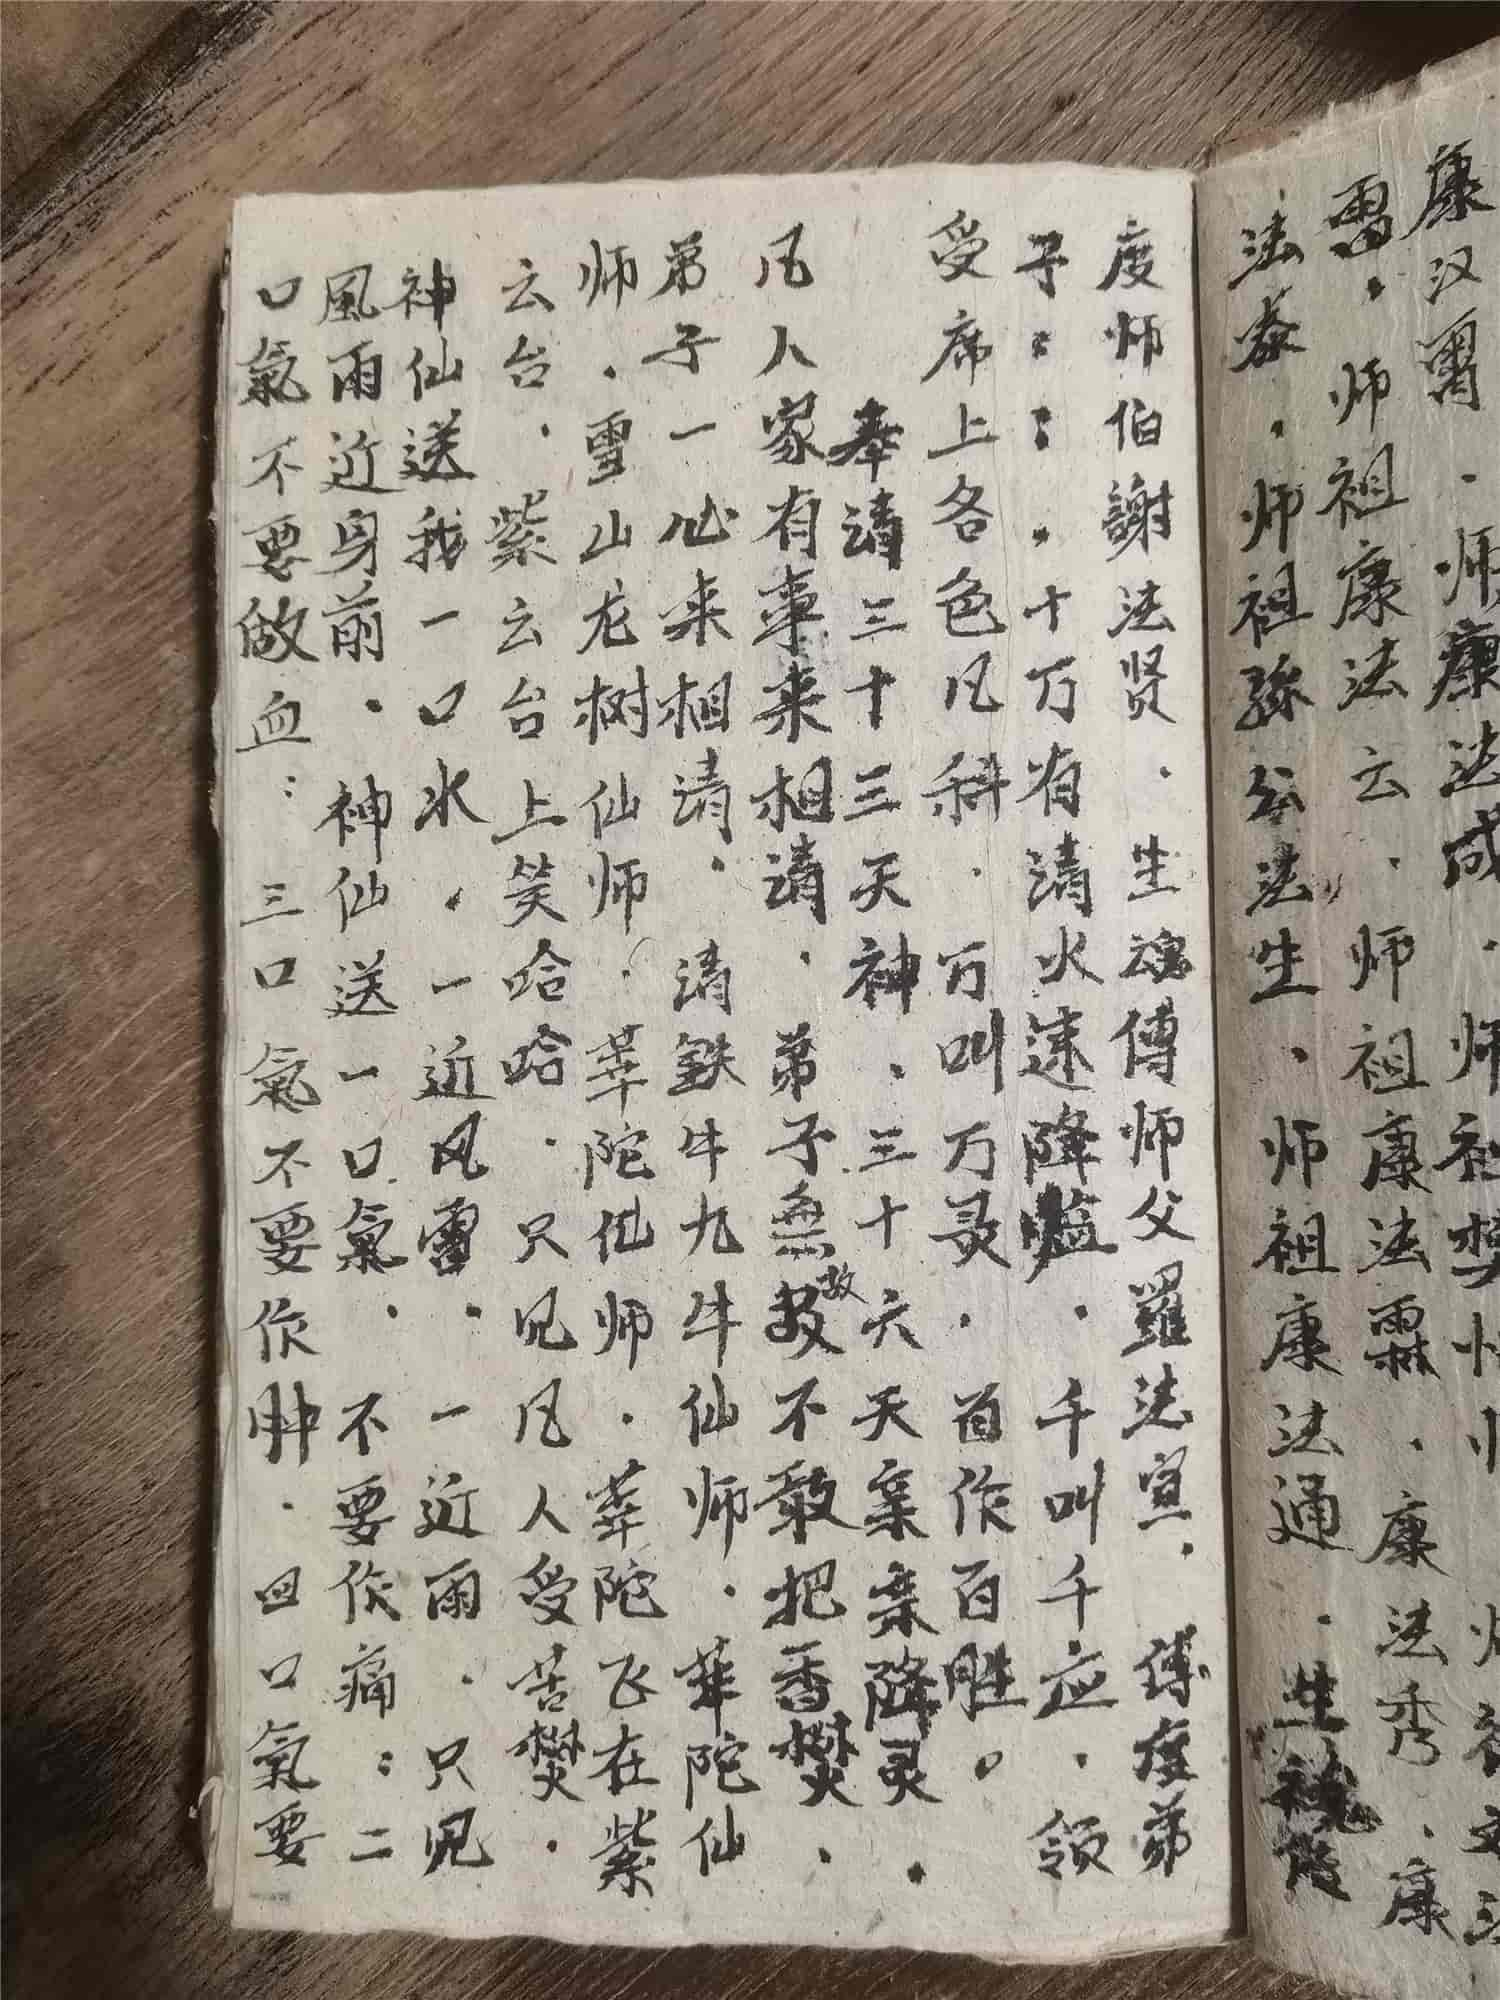 康汉
师康法成．师祖樊
雷．师祖康法云．师祖康法霖．康法秀．康
法泰．师祖孙公法生．师祖康法通．生魂
度师伯謝法贤．生魂傅师父羅法宣．傅度弟
子：：．十万有请火速降临．千叫千应．领
受席上各色凡科．万叫万灵．百作百胜。
奉请三十三天神．三十六天亲亲降灵．
凡人家有事来相请．弟子無故不敢把香焚．
弟子一心来相请．请鉄牛九牛仙师．華陀仙
师．雪山龙树仙师．華陀仙师．華陀飞在紫
云台．紫云台上笑哈哈．只见凡人受苦焚．
神仙送我一口水．一近风雷．一近雨．只见
風雨近身前．神仙送一口氣．不要作痛：二
口氣不要做血：三口氣不要作肿．四口氣要